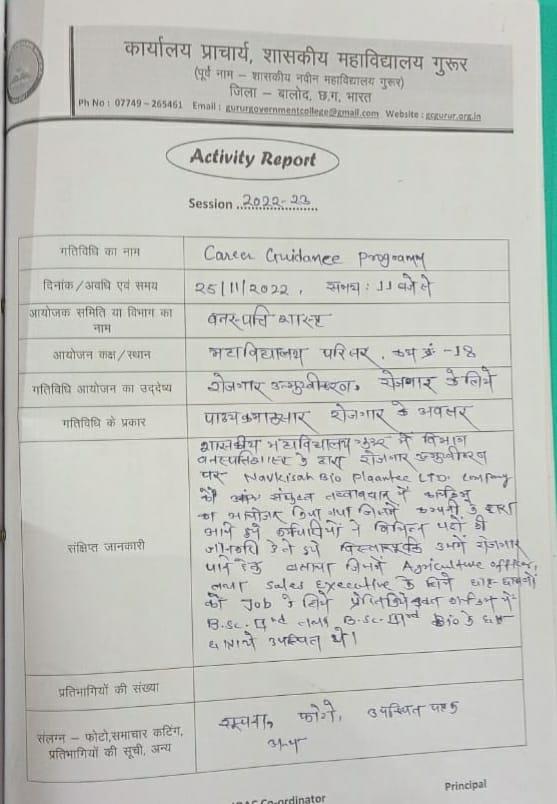 कार्यालय प्राचार्य, शासकीय महाविद्यालय गुरूर
(पूर्व नाम – शासकीय नवीन महाविद्यालय गुरूर)
जिला – बालोद, छ.ग. भारत
Ph No : 07749 – 265461 Email : gururgovernmentcollege@gmail.com Website : gcgurur.org.in
Activity Report
Session ..2022-23
गतिविधि का नाम Career Guidance Programm
दिनांक/अवधि एवं समय 25/11/2022, समय : 11 बजे से
आयोजक समिति या विभाग का वनस्पति शास्त्र
नाम
आयोजन कक्ष/स्थान महाविद्यालय परिसर, कक्ष क्रं -18
गतिविधि आयोजन का उद्देष्य रोजगार उन्मुखीकरण, रोजगार के लिये
गतिविधि के प्रकार पाठ्यक्रमानुसार रोजगार के अवसर
संक्षिप्त जानकारी
शासकीय महाविद्यालय गुरूर में विभाग
वनस्पतिशास्त्र के द्वारा रोजगार उन्मुखीकरण
पर Navkisan Bio Plaantec LTD. Company
के संयुक्त तत्वावधान में
का आयोजन किया गया जिसमें कम्पनी के द्वारा
आये हुये कर्मचारियों ने विभिन्न पदों की
जानकारी देते हुये विस्तारपूर्वक उसमें रोजगार
पाने हेतु बताया जिसमें Agriculture officer,
तथा Sales Executive के लिये छात्र छात्राओं
को Job के लिये
B.Sc. IInd तथा B.Sc. IIInd Bio के छात्र
छात्रायें उपस्थित थे।
प्रतिभागियों की संख्या
संलग्न – फोटो,समाचार कटिंग, सूचना, फोटो, उपस्थित पत्रक
प्रतिभागियों की सूची, अन्य अन्य
Co-ordinator
Principal